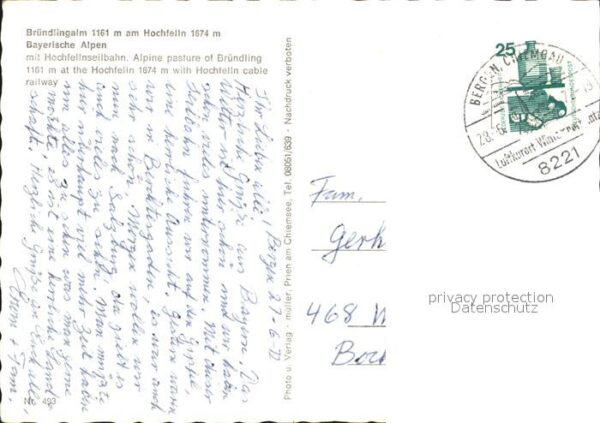 Bründlingalm 1161 m am Hochfelln 1674 m
Bayerische Alpen
mit Hochfellnseilbahn. Alpine pasture of Bründling
1161 m at the Hochfelln 1674 m with Hochfelln cable
railway
Ihr Lieben alle! Bergen 27. 6.
Herzliche Grüße aus Bayern. Das
Wetter ist hier schön und wir haben
schon vieles unternommen. Mit dieser
Seilbahn fuhren wir auf den Gipfel,
eine herrliche Aussicht, gestern waren
wir in Berchtesgaden, es war auch
sehr schön. Morgen wollen wir
nun nach Salzburg, da gibt es
auch vieles zu sehen. Man müßte
hier überhaupt viel mehr Zeit haben
um alles zu sehen was man gerne
möchte. Es ist eine herrliche Land-
schaft. Herzliche Grüße an Euch alle,
Nr. 493
Photo u. Verlag - müller, Prien am Chiemsee, Tel. 08051/639 - Nachdruck verboten
25
BERGEN, CHIEMGAU
28.-6.
Luftkurort
8221
Fam.
Gerh
468 W
Boc
privacy protection
Datenschutz